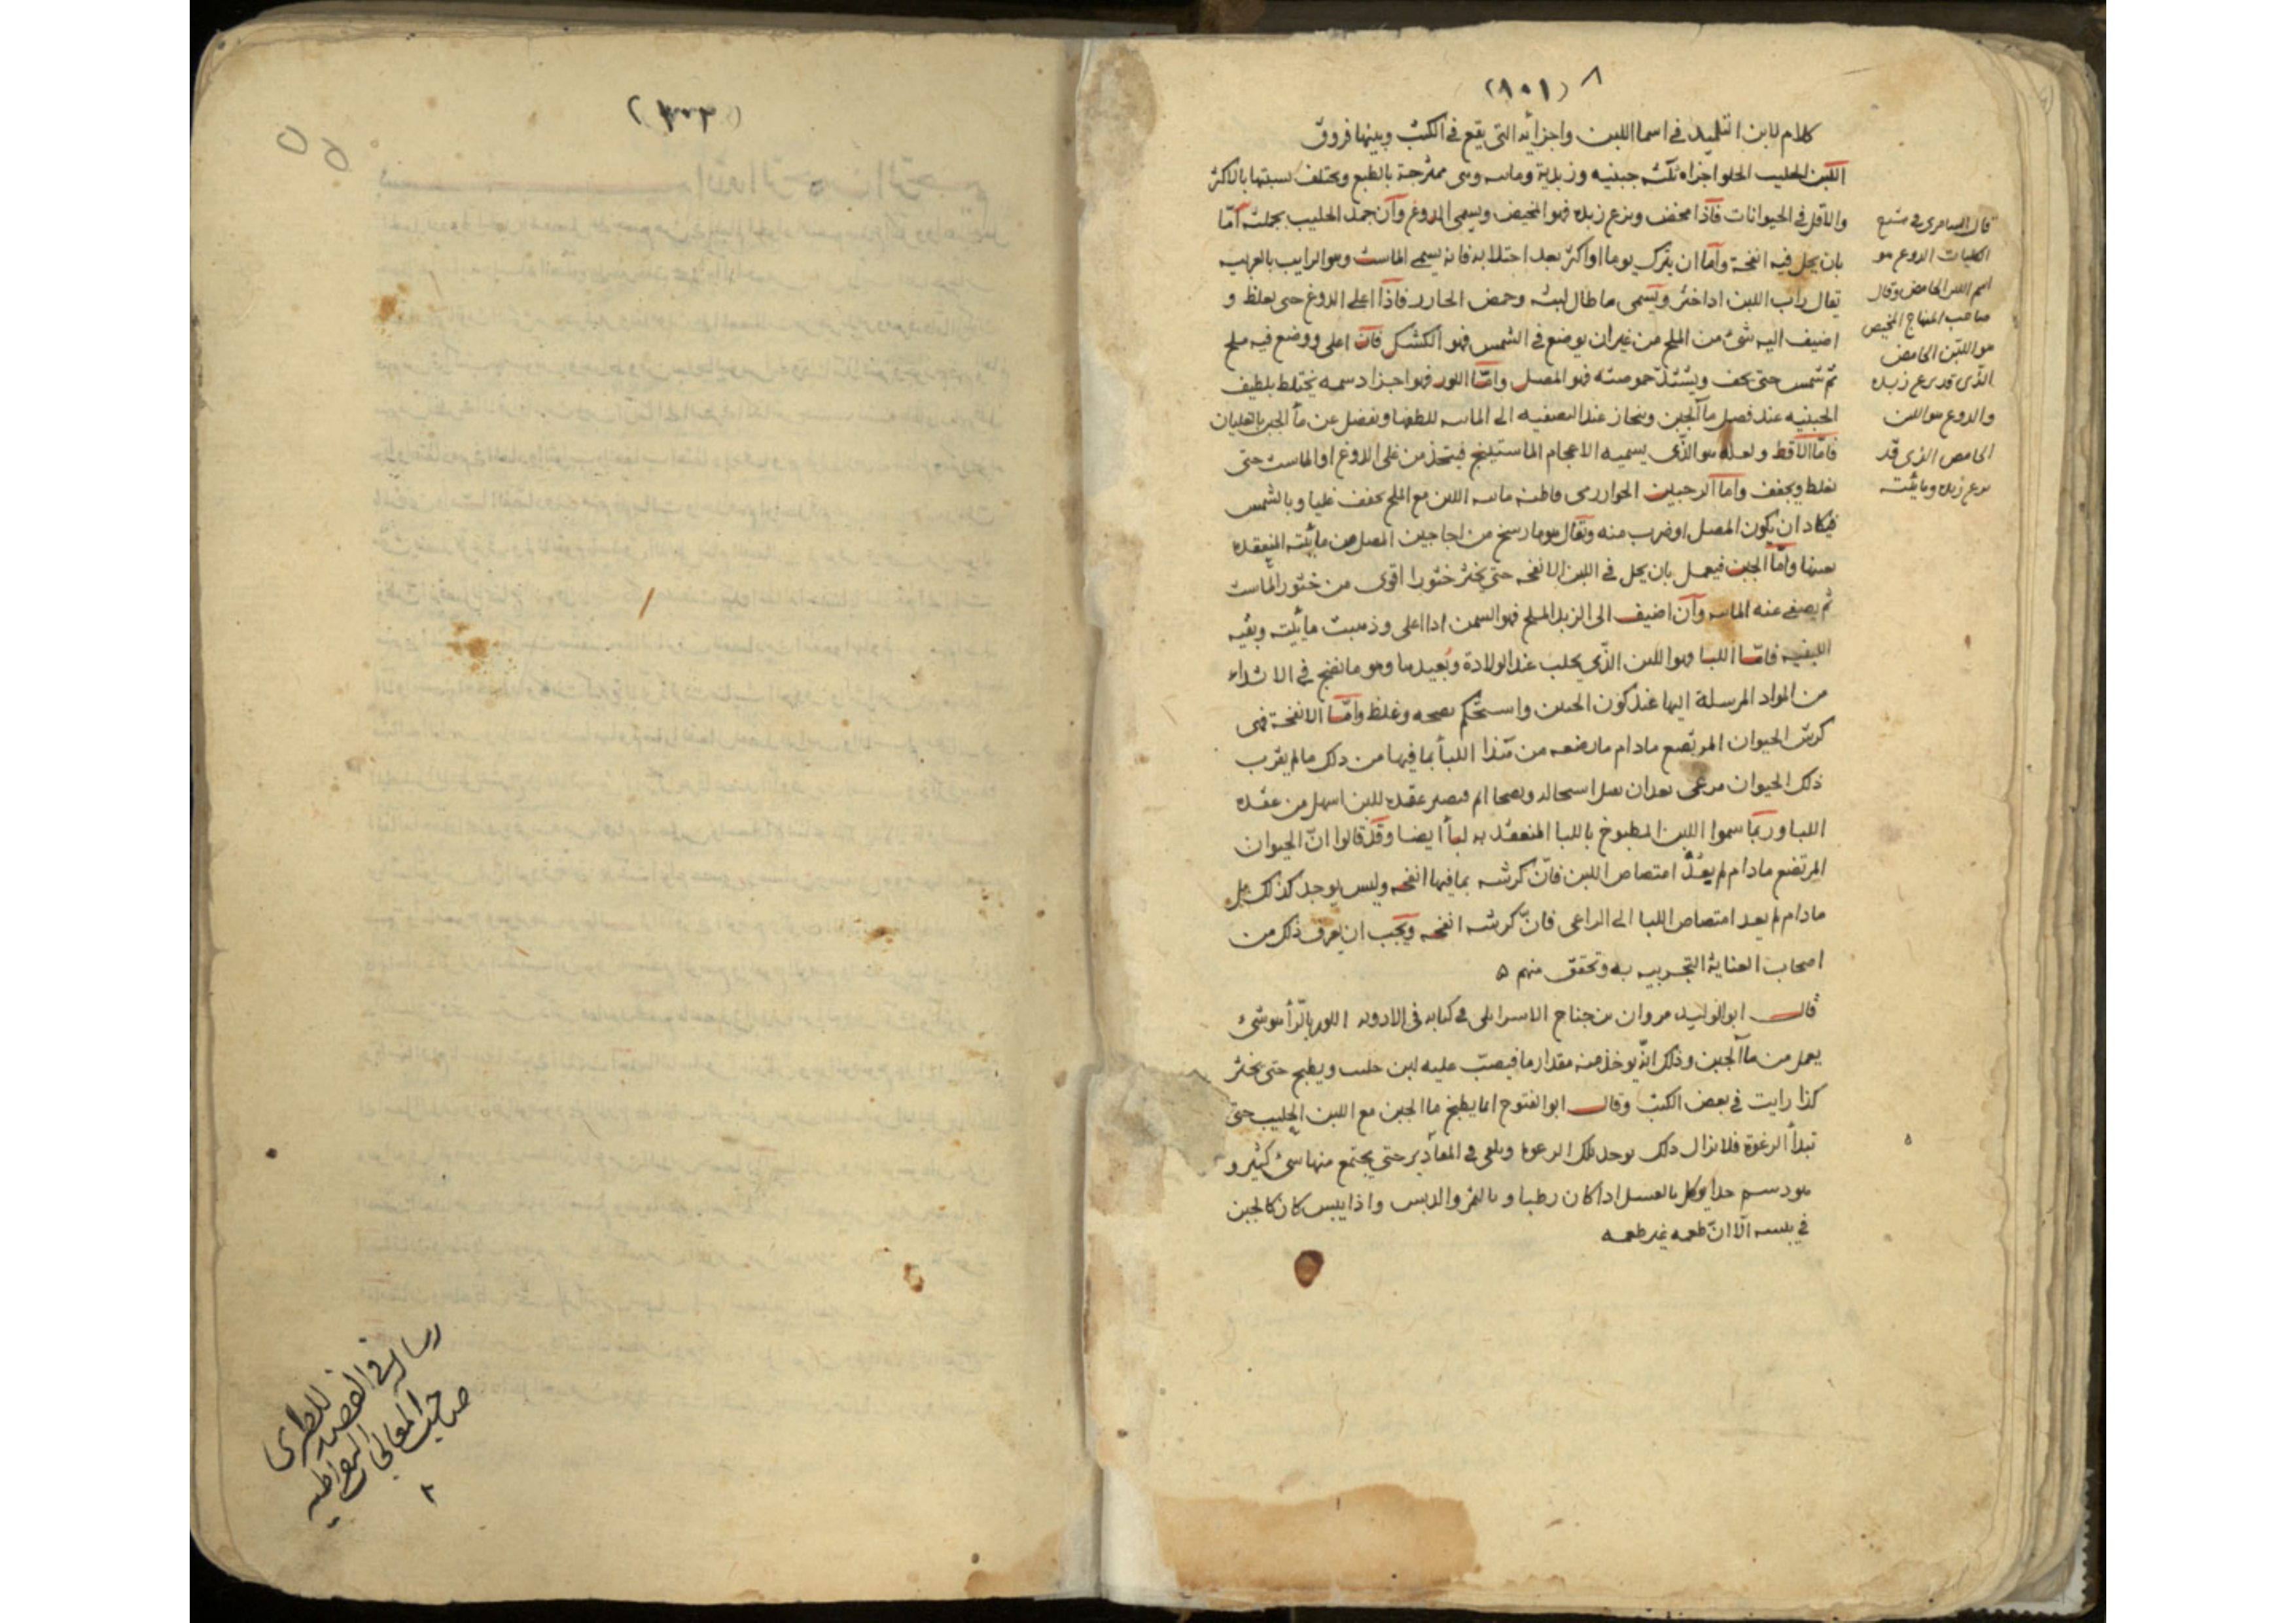 (١٠١) ٨
كلام لابن التلميذ في اسما اللبن واجزائه التي يقع في الكتب وبينها فروق
اللبن الحليب الحلو اجزاه ثلثه جبنيه وزبدية ومائيه وهي ممتزجة بالطبع ويختلف نسبتها بالاكثر
والاقل في الحيوانات فاذا مخض ونزع زبده فهو المخيض ويسمى الدوغ وان جمد الحليب بجملته اما
بان يحل فيه انفحة واما ان يترك يوما او اكثر بعد احتلابه فانه يسمى الماست وهو الرايب بالعربيه
يقال راب اللبن اذا خثر ويسمى ما طال لبثه وحمض الحازر فاذا اغلى الدوغ حتى يغلظ و
اضيف اليه شئ من الملح من غير ان يوضع في الشمس فهو الكشك فان اغلى ووضع فيه ملح
ثم شمس حتى يجف ويشتد حموضته فهو المصل واما اللور فهو اجزا دسمه يختلط بلطيف
الجبنيه عند فصل ما الجبن وينحاز عند التصفيه الى المائيه للطفها ويفصل عن ما الجبن بالغليان
فاما الاقط ولعله هو الذي يسميه الاعجام الماستينج فيتخذ من غلي الدوغ او الماست حتى
يغلظ ويجفف واما الرخبين الخوارزمي فاظنه مائيه اللبن مع الملح يجفف غليا وبالشمس
فيكاد ان يكون المصل او ضرب منه ويقال هو ما رسخ من اجاجين المصل من مائيته المنعقده
بعينها واما الجبن فيعمل بان يحل في اللبن الانفحه حتى يخثر خثورا اقوى من خثور الماست
ثم يصفى عنه المائيه وان اضيف الى الزبد الملح فهو السمن اذا اغلى وذهبت مائيته وبقيه
اللبنيه فاما اللبا فهو اللبن الذي يحلب عند الولادة وبعيدها وهو ما نضج في الاثداء
من المواد المرسلة اليها عند كون الجنين واستحكم نضجه وغلظ واما الانفحة فهي
كرش الحيوان المرتضع مادام مارضعه من هذا اللبأ بما فيها من ذلك ما لم يقرب
ذلك الحيوان مرعى بعد ان فيصير عقده للبن اسهل من عقده
اللبا وربما سموا اللبن المطبوخ باللبا المنعقد به لبأ ايضا وقد قالوا ان الحيوان
المرتضع مادام لم يعد امتصاص اللبن فان كرشه بما فيها انفحه وليس يوجد كذلك بل
مادام لم يعد امتصاص اللبا الى المراعي فان كرشه انفحه ويجب ان يعرف ذلك من
اصحاب العناية التجربيه به وتحقق منهم ٥
قال ابو الوليد مروان بن جناح الاسرايلي في كتابه في الادويه اللور بالرأ هو شئ
يعمل من ما الجبن وذلك انه يوخذ منه مقدار ما فيصب عليه لبن حليب ويطبخ حتى يخثر
كذا رايت في بعض الكتب وقال ابو الفتوح انما يطبخ ما الجبن مع اللبن الحليب حتى
تبدأ الرغوة فلا يزال ذلك يوخذ تلك الرغوة ويلقى في حتى يجتمع منها شئ كثير و
هو دسم جدا يوكل بالعسل اذا كان رطبا وبالتمر والدبس واذا يبس كان كالجبن
في يبسه الا ان طعمه غير طعمه
قال السامري في شرح
الكليات الدوغ هو
اسم اللبن الحامض وقال
صاحب المنهاج المخيض
هو اللبن الحامض
الذي قد نزع زبده
والدوغ هو اللبن
الحامض الذي قد
نزع زبده ومائيته
(١٠٢)
رساله في الفصد للطبري
صاحب المعالجات البقراطيه
٢